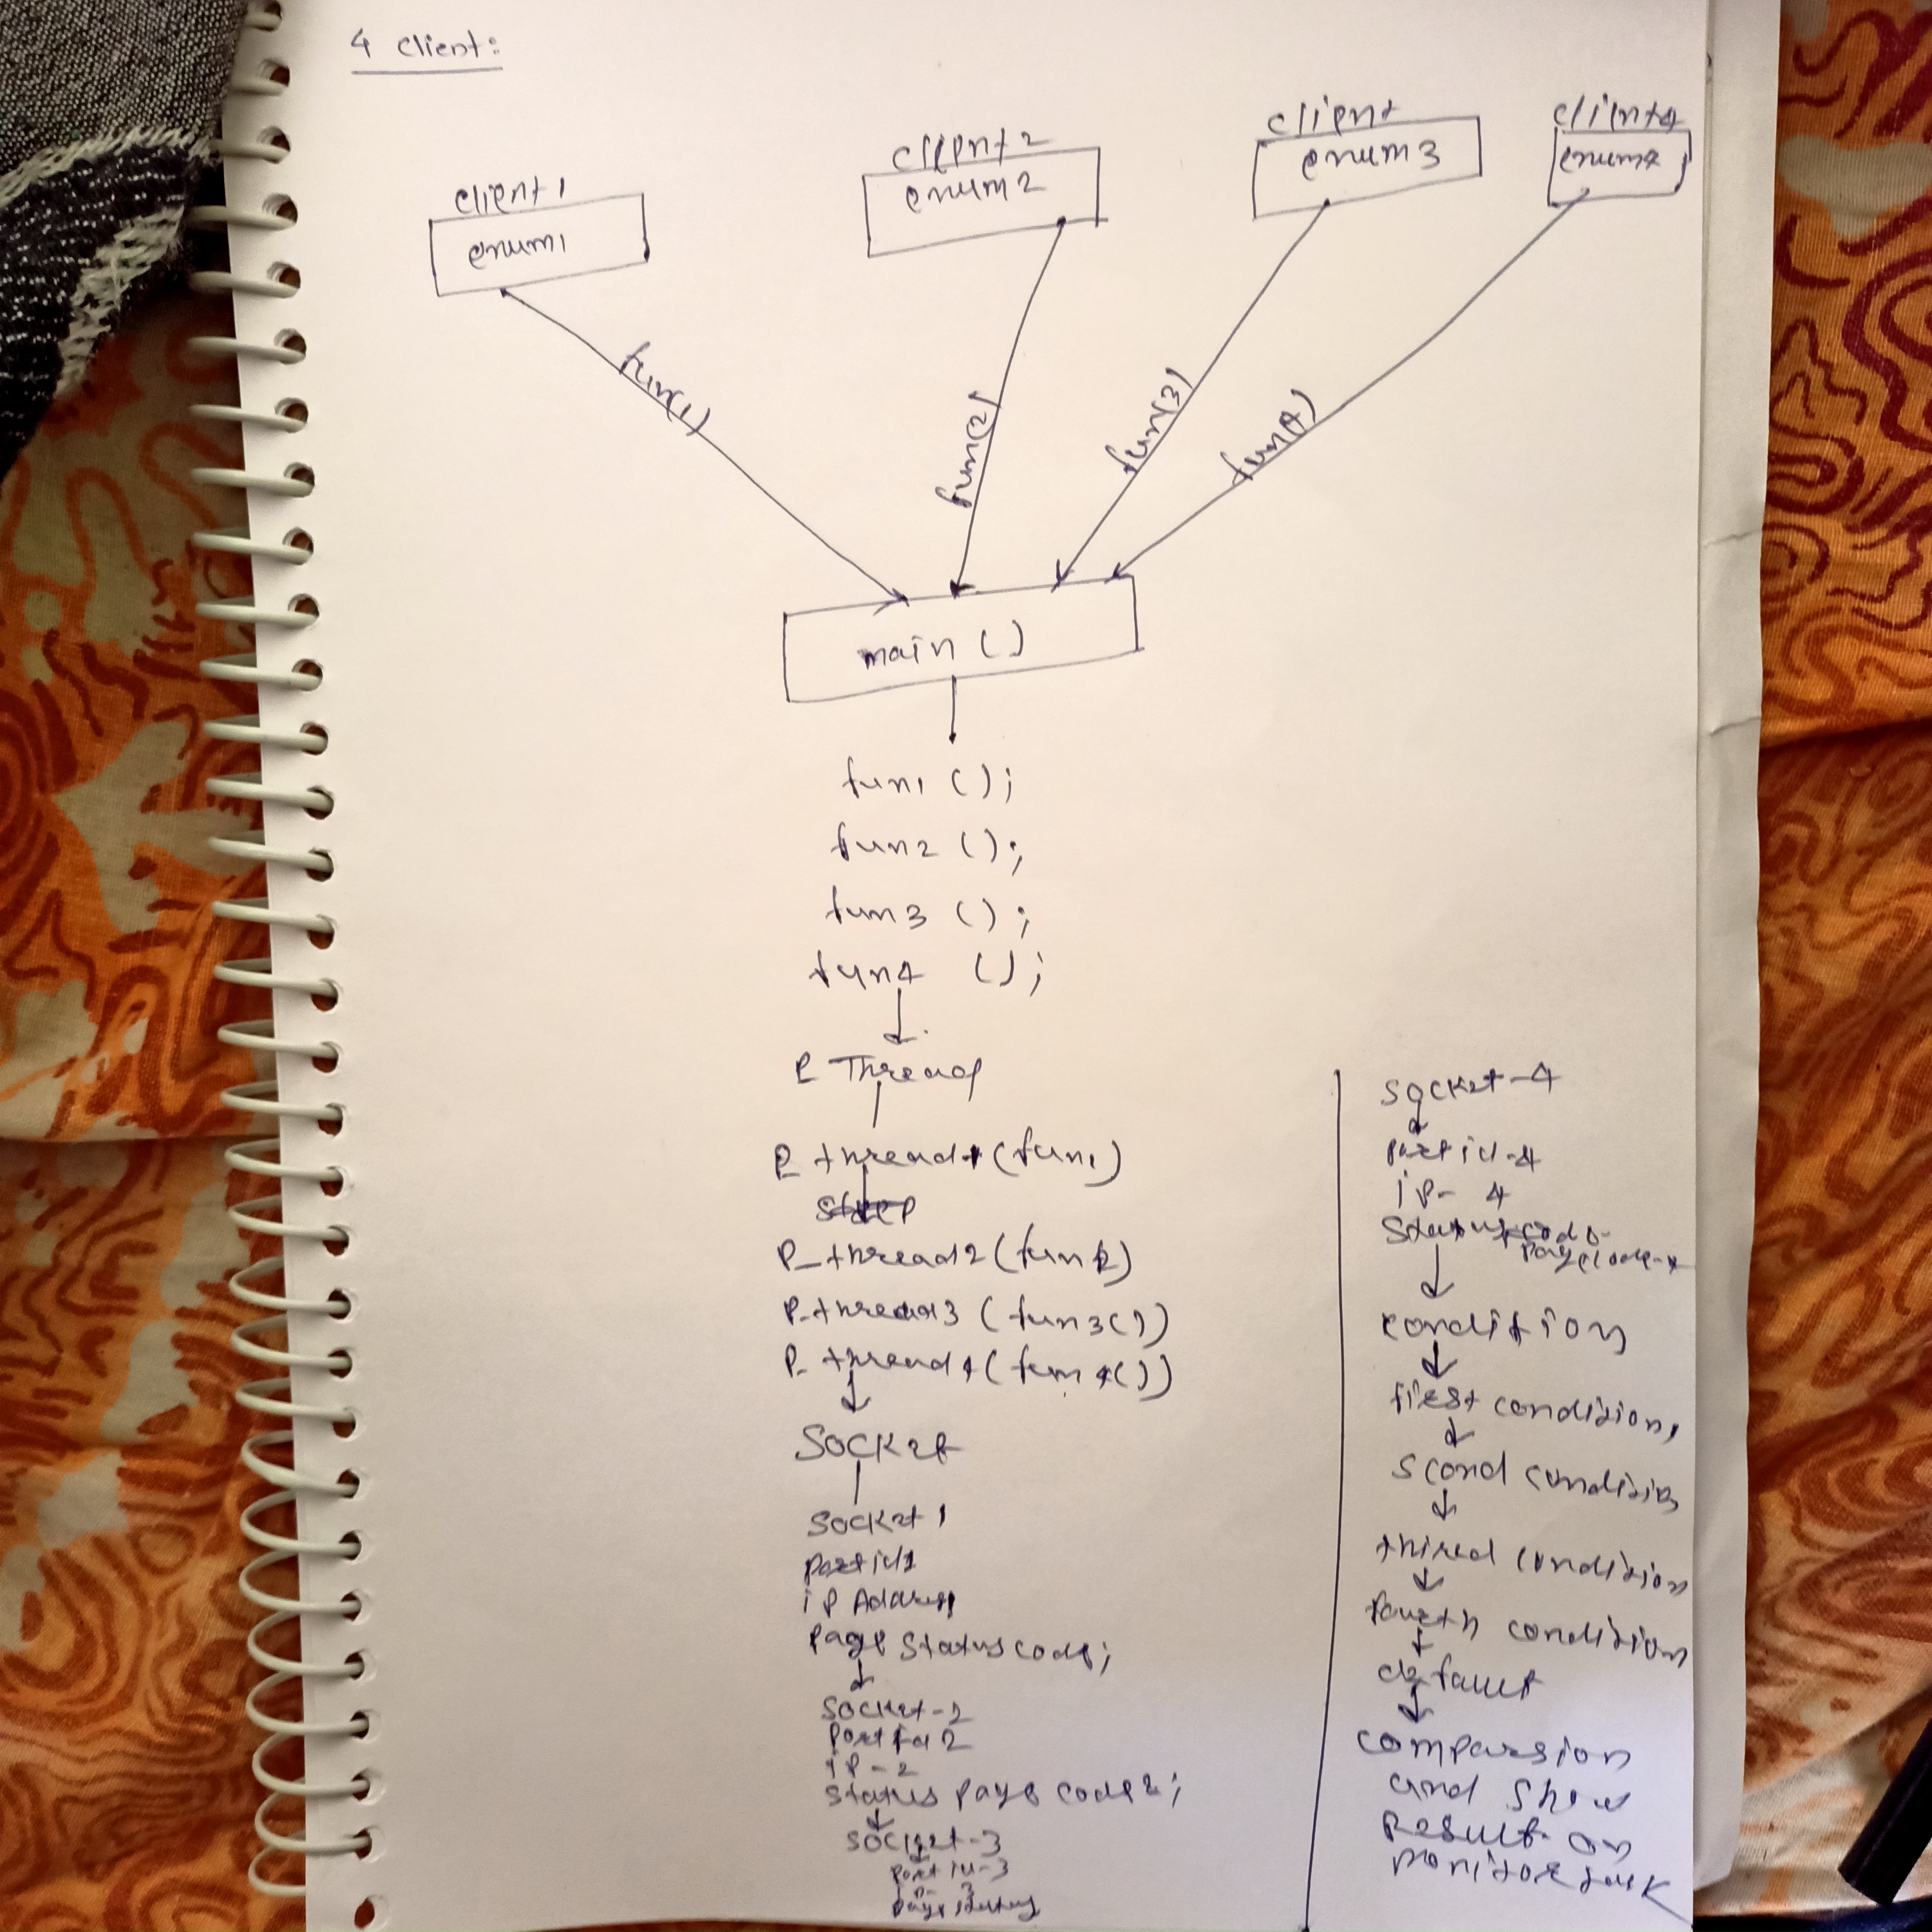 4 Client:
client1
enum1
client2
enum2
client
enum3
client4
enum4
fun(1)
fun(2)
fun(3)
fun(4)
main ()
fun1 ();
fun2 ();
fun3 ();
fun4 ();
P Thread
P_thread1 (fun1)
P_thread2 (fun2)
P_thread3 (fun3())
P_thread4 (fun4())
Socket
Socket1
Port id1
ip Address
Page Status code;
Socket-2
Port id 2
ip-2
Status page code2;
Socket-3
Port id-3
ip- 3
Page
Socket-4
Port id-4
ip- 4
Status code-
Page code-4
condition
first condition,
scond condition
thired condition
fourth condition
default
comparsion
and show
result on
monitor